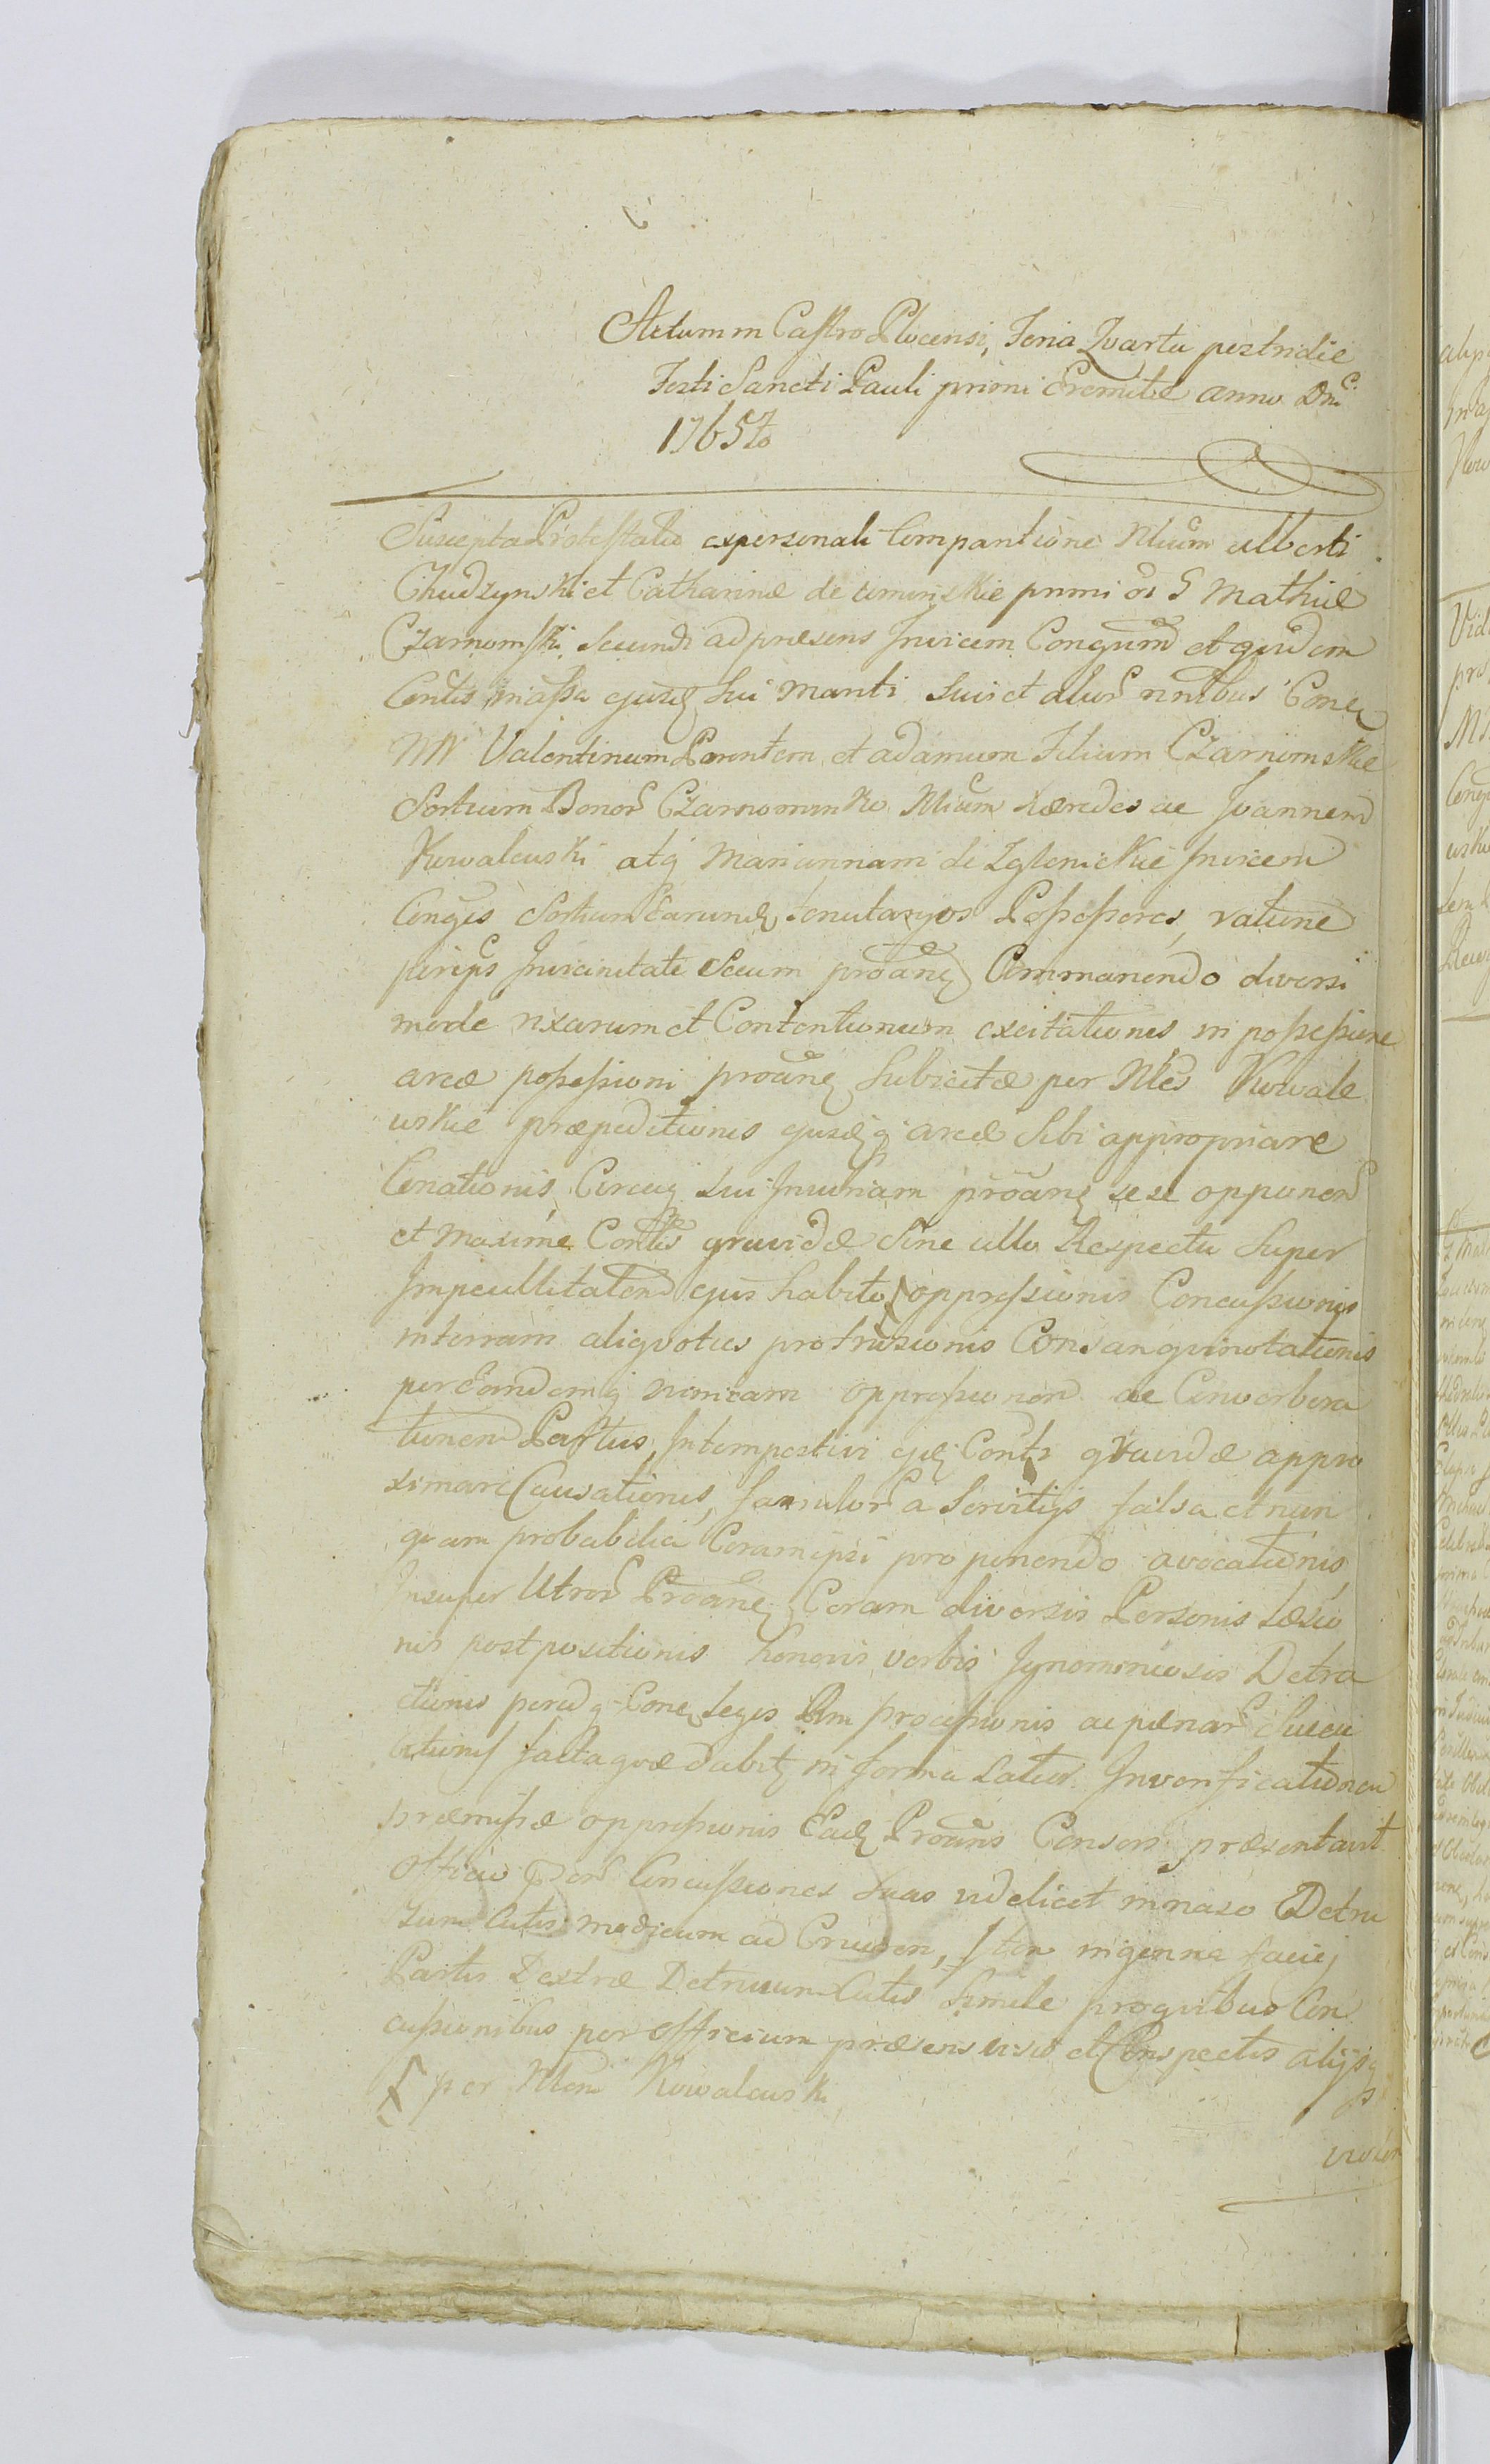 Actum in Castro Plocensi, Feria Qvarta postridie
Festi Sancti Pauli primi Eremitæ anno Dni
1765to
Suscepta Protestatio ex personali Comparitione Nlium Alberti
Chudzynski et Catharinæ de primi Mathiæ
Czarnomski Secundi ad præsens Invicem Conjgum et qvidem
Contis in assa ejusq sui Mariti suis et alior nnibus Conq
MN Valentinum Parentem et Adamum Filium Czarnomskie
Sortium Bonor Czarnominko Nlium hæredes ac Joannem
Kowalewski atq Mariannam de Zglenickie Invicem
Conges Sortium Earunq tenutaryos Possessores, ratione
piripis Invicinitate Secum proanq Commanendo diversi
mode rixarum et Contentionum excitationis in possessione
areæ possessioni proanq Subiectæ per Nles Kowale
wskie præpeditionis ejusdq areæ Sibi appropriare
Conationis, Circaq sui Injuriam proanq sese opponen
et maxime Contis gravidæ Sine ullo Respectu Super
Impecillitatem ejus habito oppressionis Concussionis
in terram aliqvoties protrusionis Consangvinolationis
per Eamdemq nimiam oppressionem ac Converbera
tionem Partus Intempestivi ejq Contis gravidæ appro
ximare Causationis, famulor a Servitijs falsa et nun
qvam probabilia Coram ipsi proponendo avocationis
Insuper Utror Proanq Coram diversis Personis Læsio
nis postpositionis honoris verbis Ignominiosis Detra
ctionis peridq Conq Leges Rni processionis ac pænar Succu
bitionis facta qvæ dabitq in forma Latior. In verificationem
præmissæ oppressionis Eadq Proans Conson præsentavit
Officio pnor Concussiones suas videlicet in naso Detru
sum Cutis modicum ad Cruorem, Item in genna faciej
Partis Dextræ Detrusum Cutis Simile pro qvibus Con
cussionibus per Officium præsens visis et Conspectis alijsq
per Nlem Kowalewski